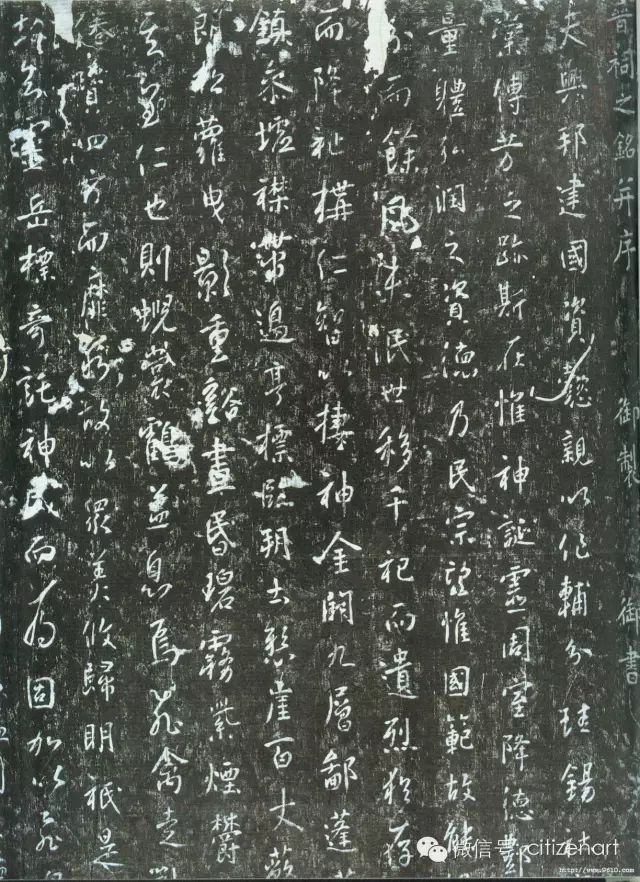 晉祠之銘并序 御製 御書
夫興邦建國資懿親以作輔分珪錫
葉傳芳之跡斯在惟神誕靈周室降德酆
量體弘潤之資德乃民宗望惟國範故能
分而餘風未泯世移千祀而遺烈猶存
而降祉構仁智以棲神金闕九層鄙蓬
鎮參墟襟帶邊亭標臨朔土懸崖百丈蔽
朗松蘿曳影重谿晝昏碧霧紫煙鬱
其至仁也則蜺裳鶴蓋息焉飛禽走
四方而靡窮故以眾美攸歸明祇是
靈岳標奇託神民而為固加以飛
微信号: citizenart
http://www.9610.com